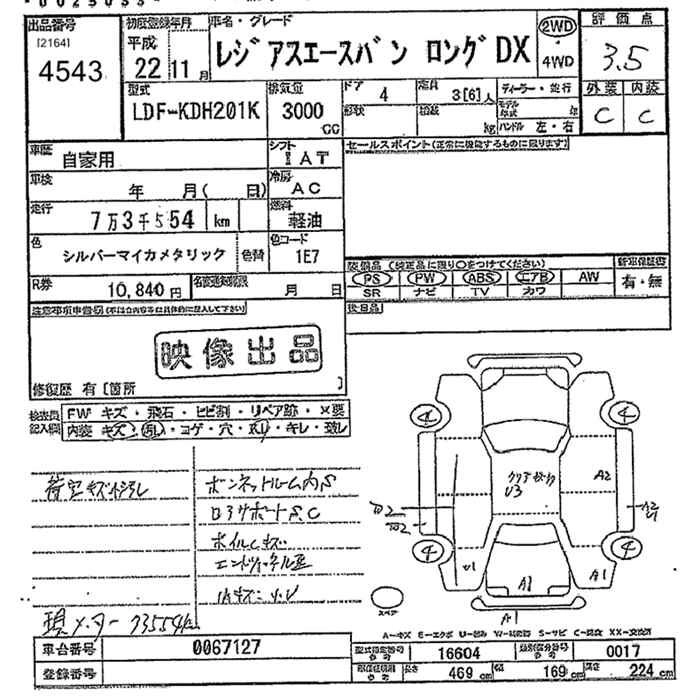 出品番号
[2164]
4543
初度登録年月
平成
22 11月
車名・グレード
レジアスエースバン ロングDX
2WD
・
4WD
評価点
3.5
外装 内装
C C
型式
LDF-KDH201K
排気量
3000
CC
ドア 4
形状
定員 3[6]人
積載 kg
ディーラー・並行
モデル年式 年
ハンドル 左・右
車歴 自家用
シフト IAT
セールスポイント(正常に機能するものに限ります)
車検 年 月( 日)
冷房 AC
走行 7万3千554 km
燃料 軽油
色 シルバーマイカメタリック 色替
色コード 1E7
装備品 (純正品に限り○をつけてください)
PS PW ABS エアB AW
SR ナビ TV カワ
新車保証書
有・無
R券 10,840円
名変期限 月 日
後日品
注意事項申告欄
映像出品
修復歴 有[箇所 ]
検査員記入欄
FW キズ・飛石・ヒビ割・リペア跡・×要
内装 キズ・汚れ・コゲ・穴・ネジ・キレ・破レ
荷室キズ汚れ
ボンネットルーム内S
ロアサポートS,C
ホイルCキズ
現メーター 73554km
4
4
4
4
U3
A2
U1
A1
A1
A1
スペア
A-キズ E-エクボ U-凹み W-補修跡 S-サビ C-腐食 XX-交換済
車台番号 0067127
登録番号
型式指定番号 16604
類別区分番号 0017
長さ 469 cm
幅 169 cm
高さ 224 cm